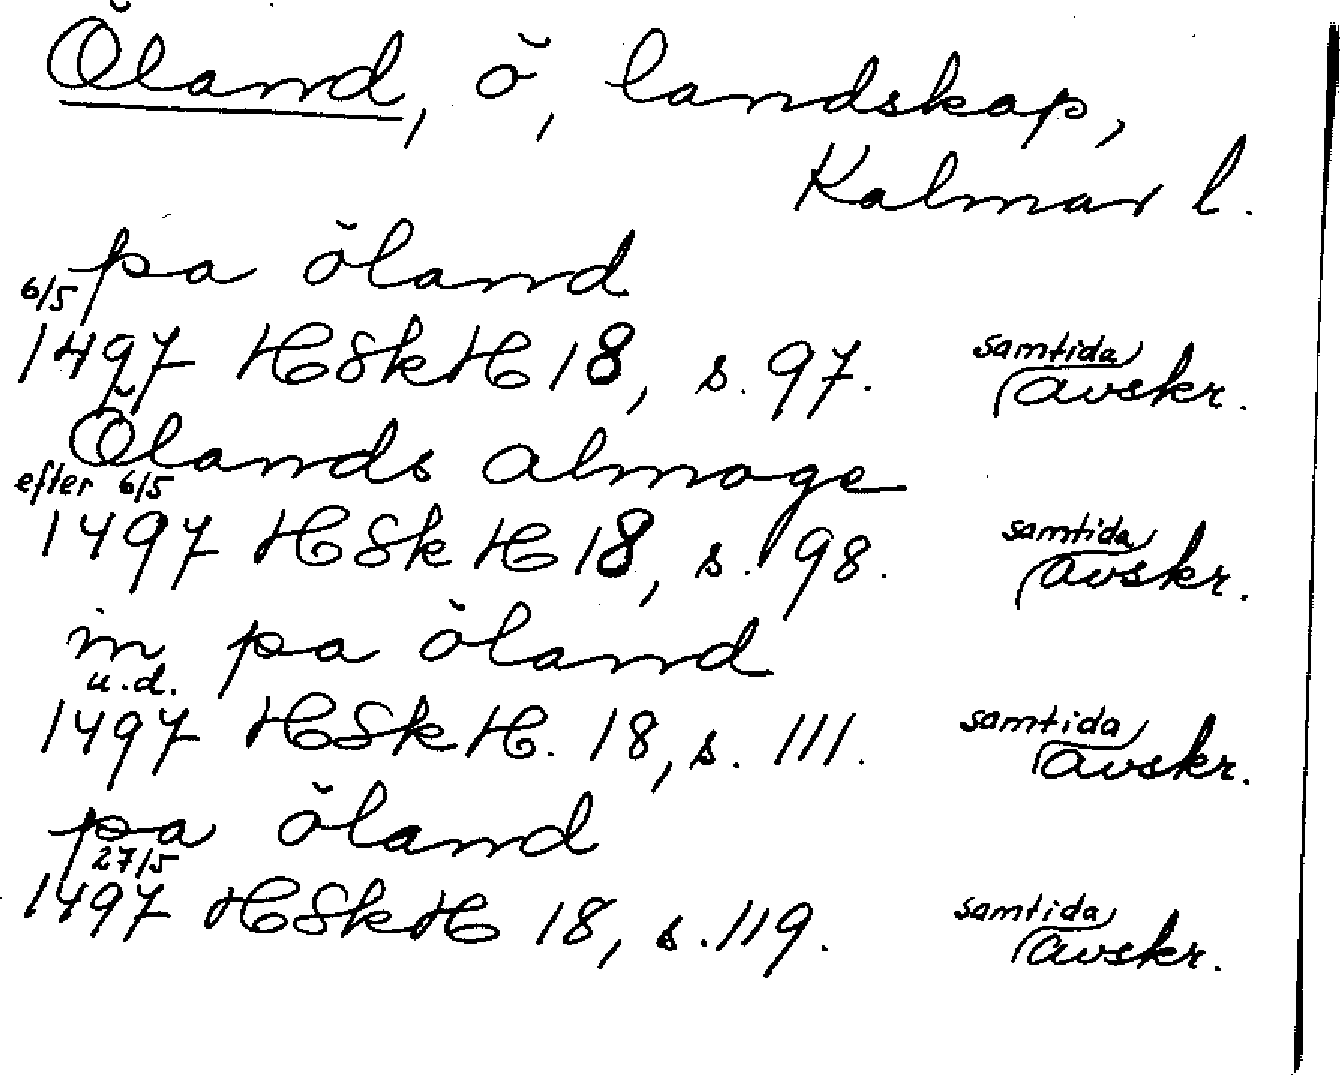 Öland, ö, landskap,
Kalmar l.
pa öland
6/5
1497 HSkH 18, s. 97. samtida avskr.
Ölands almoge
efter 6/5
1497 HSkH 18, s. 98. samtida avskr.
in pa öland
u.d.
1497 HSkH. 18, s. 111. samtida avskr.
pa öland
27/5
1497 HSkH 18, s. 119. samtida avskr.